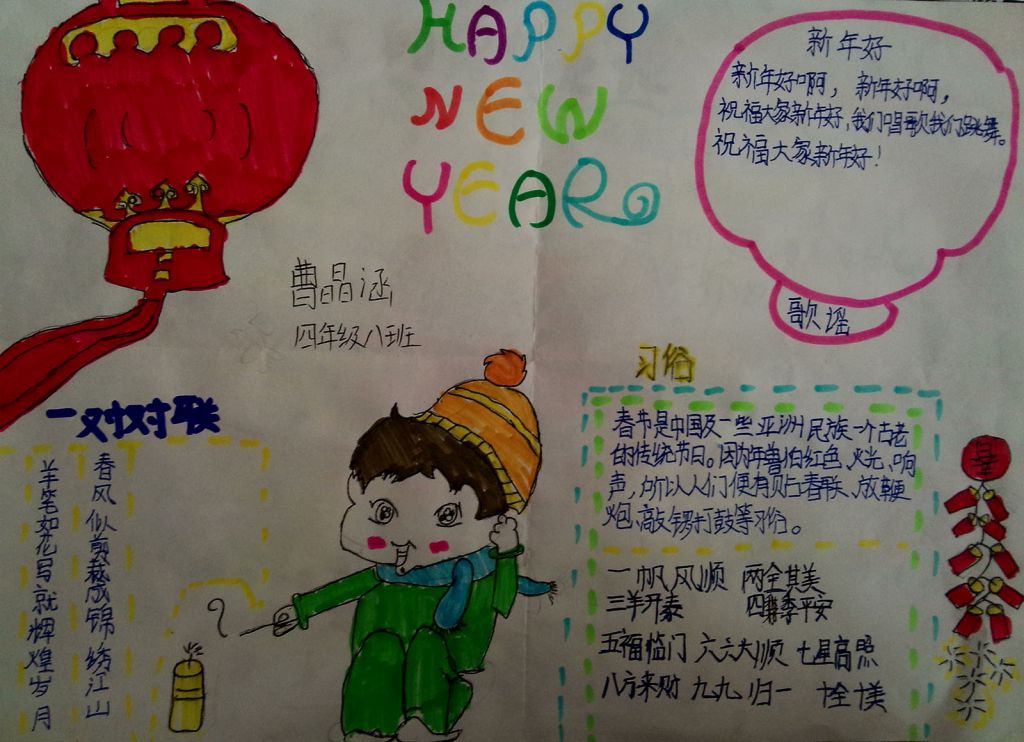 HAPPY
NEW
YEAR
新年好
新年好啊，新年好啊，
祝福大家新年好，我们唱歌我们跳舞。
祝福大家新年好！
歌谣
曹晶涵
四年级八班
习俗
春节是中国及一些亚洲民族一个古老
的传统节日。因为年兽怕红色、火光、响
声，所以人们便有贴春联、放鞭
炮、敲锣打鼓等习俗。
一帆风顺 两全其美
三羊开泰 四季平安
五福临门 六六大顺 七星高照
八方来财 九九归一 十全十美
一对对联
春风似剪裁成锦绣江山
羊笔如花写就辉煌岁月